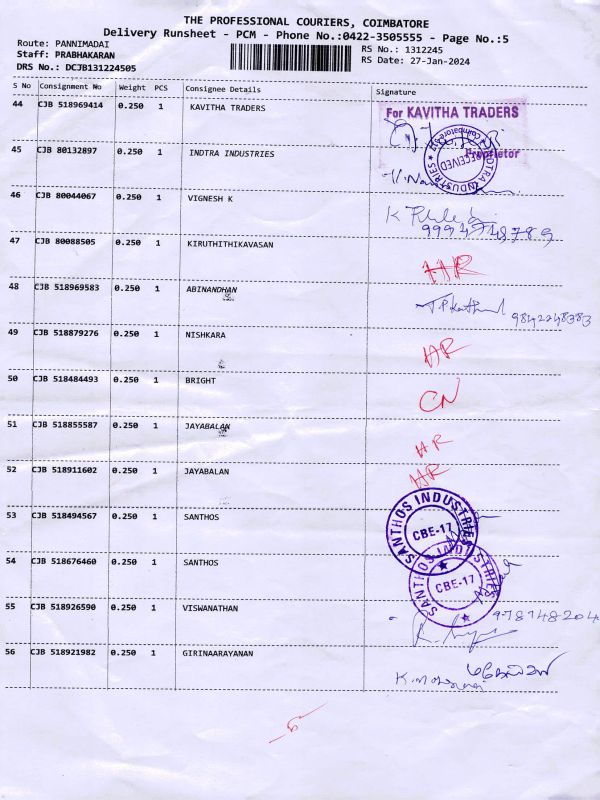 THE PROFESSIONAL COURIERS, COIMBATORE
Delivery Runsheet - PCM - Phone No.:0422-3505555 - Page No.:5
Route: PANNIMADAI RS No.: 1312245
Staff: PRABHAKARAN RS Date: 27-Jan-2024
DRS No.: DCJB131224505
S No Consignment No Weight PCS Consignee Details Signature
44 CJB 518969414 0.250 1 KAVITHA TRADERS
For KAVITHA TRADERS
Proprietor
45 CJB 80132897 0.250 1 INDTRA INDUSTRIES
RECEIVED
46 CJB 80044067 0.250 1 VIGNESH K
9994748789
47 CJB 80088505 0.250 1 KIRUTHITHIKAVASAN HR
48 CJB 518969583 0.250 1 ABINANDHAN
9842248383
49 CJB 518879276 0.250 1 NISHKARA HR
50 CJB 518484493 0.250 1 BRIGHT CN
51 CJB 518855587 0.250 1 JAYABALAN HR
52 CJB 518911602 0.250 1 JAYABALAN HR
53 CJB 518494567 0.250 1 SANTHOS
SANTHOS INDUSTRIES CBE-17
54 CJB 518676460 0.250 1 SANTHOS
SANTHOS INDUSTRIES CBE-17
55 CJB 518926590 0.250 1 VISWANATHAN
56 CJB 518921982 0.250 1 GIRINAARAYANAN